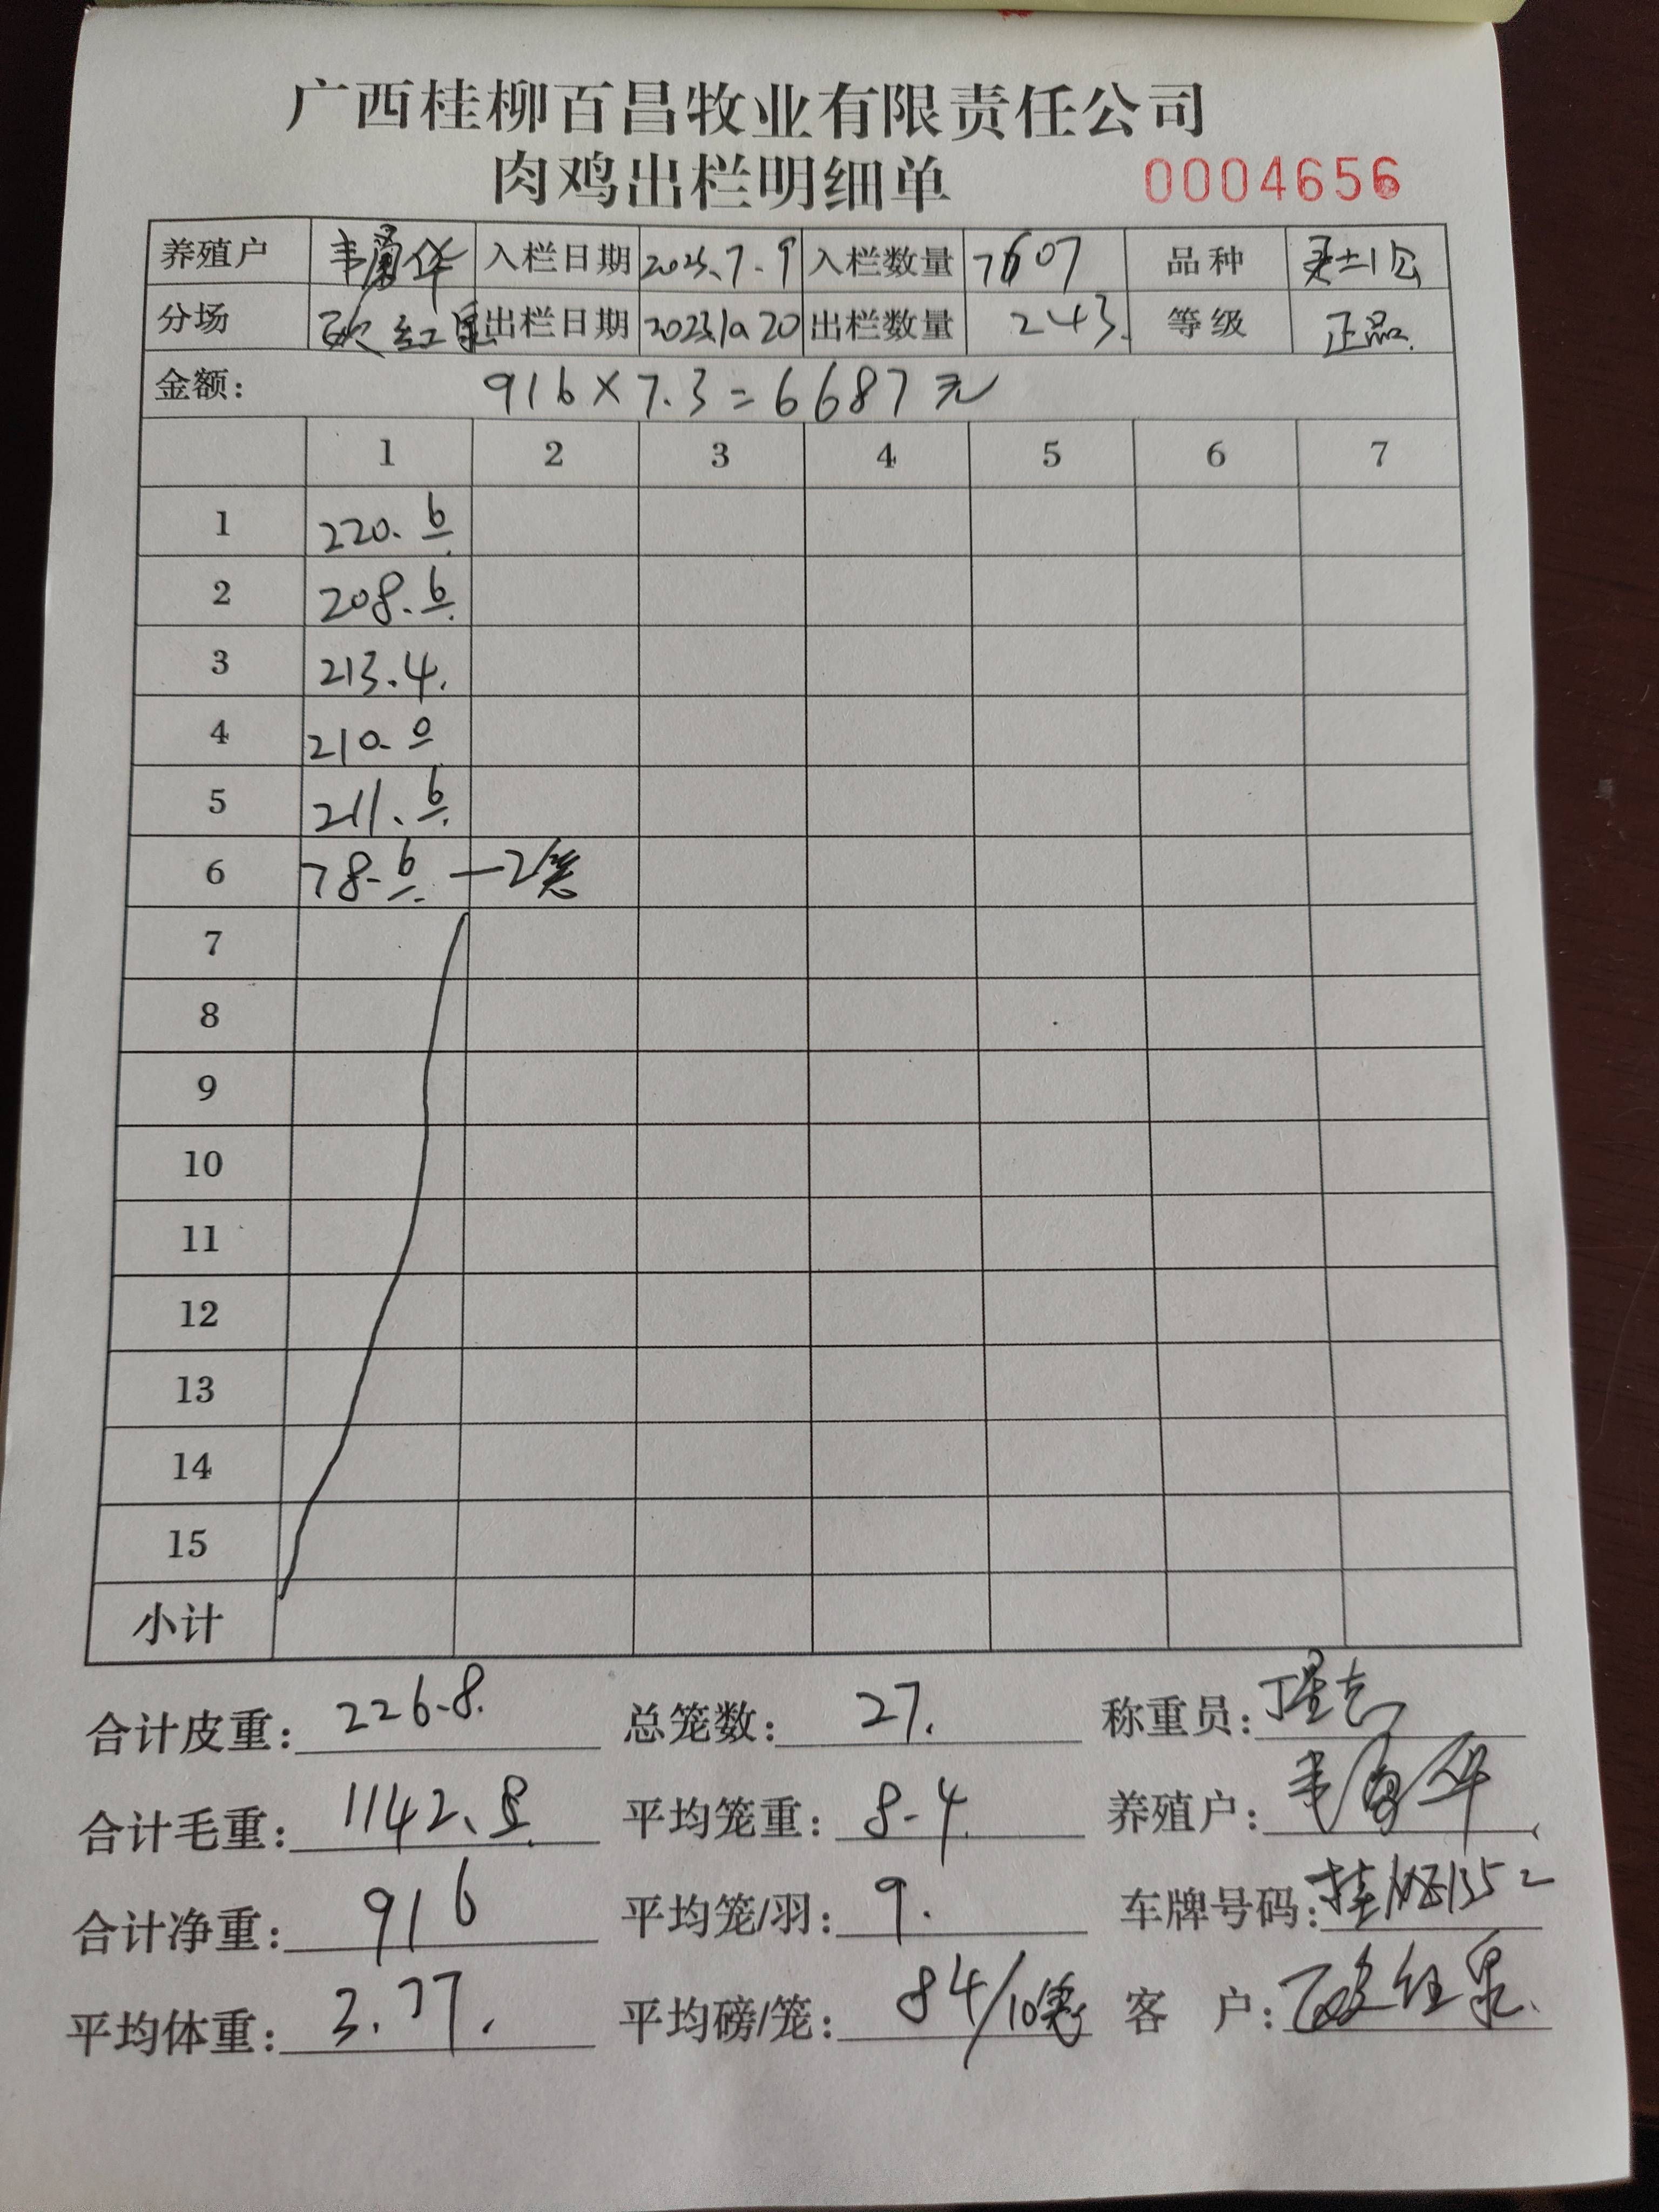 广西桂柳百昌牧业有限责任公司
肉鸡出栏明细单 0004656
养殖户 韦富华 入栏日期 2023.7.9 入栏数量 7607 品种
分场 红泉 出栏日期 2023.10.20 出栏数量 243. 等级 正品.
金额: 916×7.3=6687元
1 2 3 4 5 6 7
1 220.6
2 208.6
3 213.4.
4 210.0
5 211.6
6 78.6 —2笼
7
8
9
10
11
12
13
14
15
小计
合计皮重: 226.8. 总笼数: 27. 称重员:
合计毛重: 1142.8 平均笼重: 8.4 养殖户: 韦富华
合计净重: 916 平均笼/羽: 9. 车牌号码:
平均体重: 3.77. 平均磅/笼: 84/10笼 客 户: 红泉